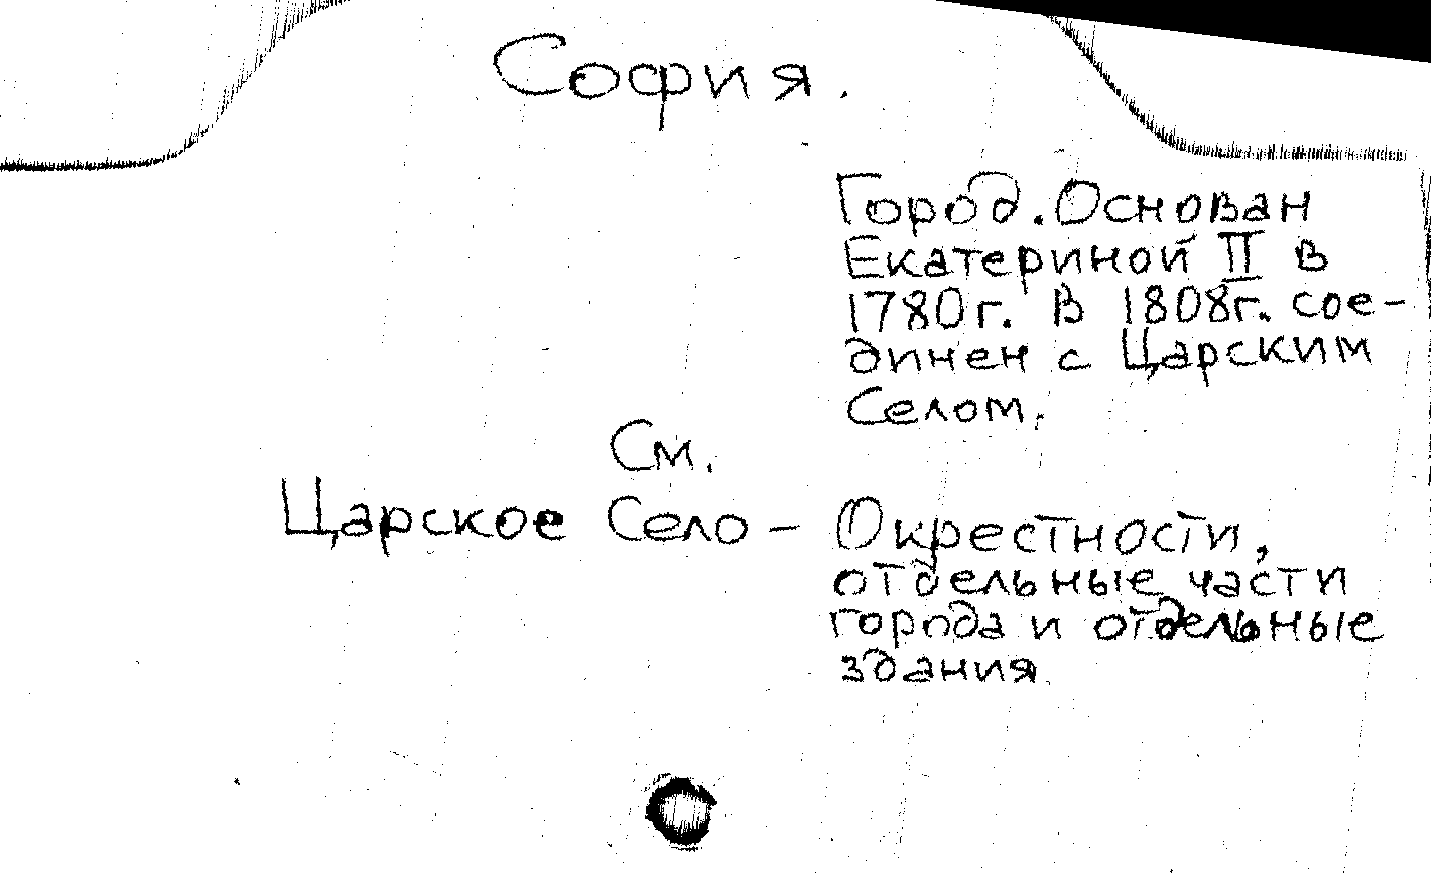 София.
Город. Основан
Екатериной II в
1780г. В 1808г. сое-
динен с Царским
Селом.
См.
Царское Село - Окрестности,
отдельные части
города и отдельные
здания.